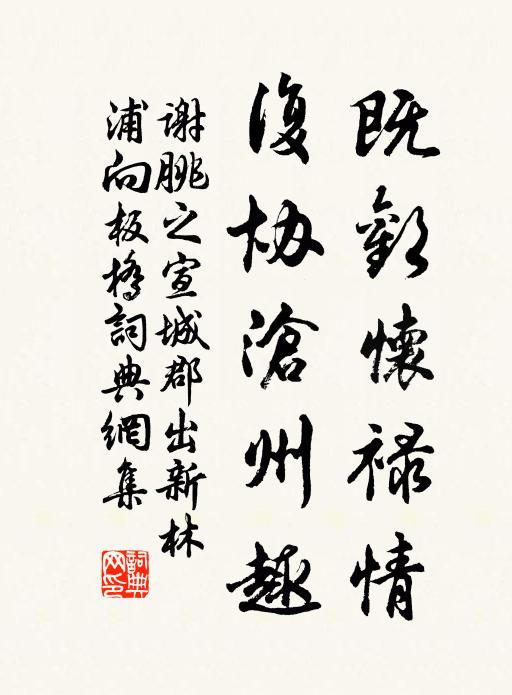 既歡懷禄情
復协滄州趣
謝朓之宣城郡出新林
浦向板橋詞典網集
詞典
网印